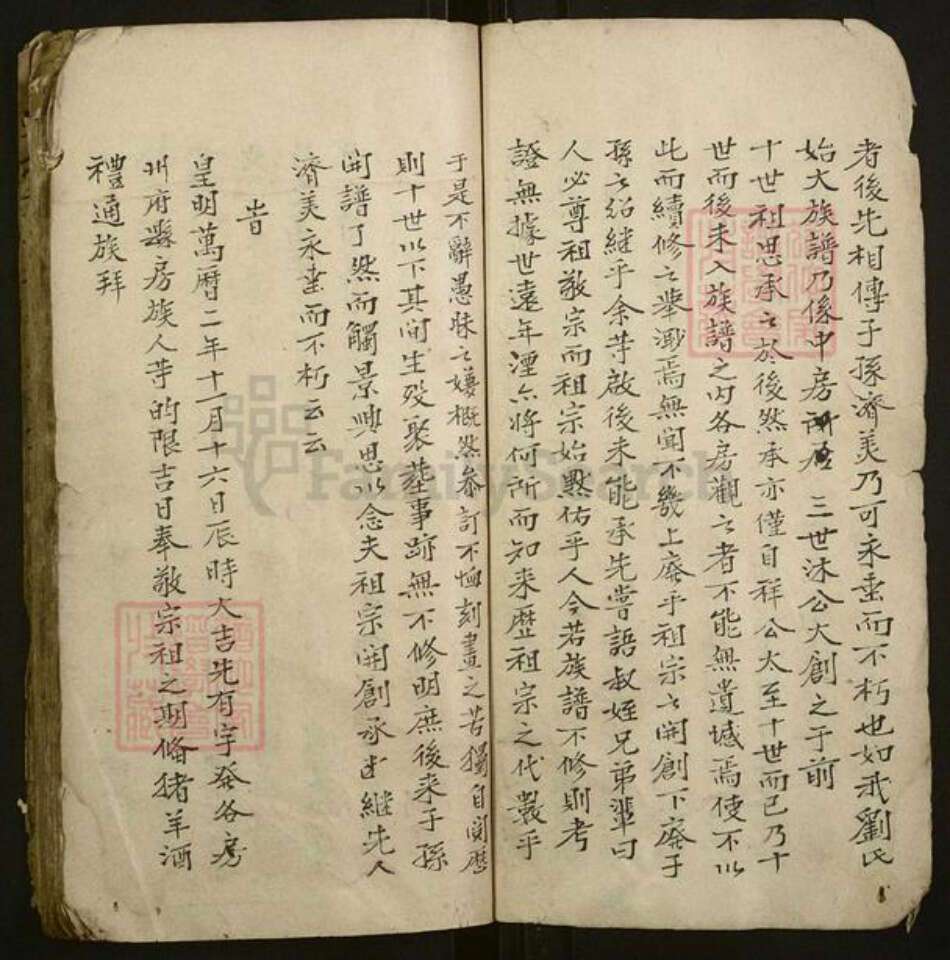 者後先相傳子孫濟美乃可永垂而不朽也如我劉氏
始大族譜乃係中房所居 三世沐公大創之于前
十世祖思承之於後然承亦僅自祥公太至十世而已乃十
世而後未入族譜之內各房觀之者不能無遺憾焉使不以
此而續修之舉泯焉無聞不幾上廢乎祖宗之開創下廢于
孫之紹繼乎余等啟後未能承先嘗語叔姪兄弟輩曰
人必尊祖敬宗而祖宗始默佑乎人今若族譜不修則考
證無據世遠年湮亦將何所而知来歷祖宗之代數乎
于是不辭愚昧之嫌概然參訂不恤刻畫之苦獨自閱歷
則十世以下其間生殁聚塟事跡無不修明庶後来子孫
開譜了然而觸景興思以念夫祖宗開創承 継先人
濟美永垂而不朽云云
旹
皇明萬曆二年十一月十六日辰時大吉先有字發各房
州府縣房族人等的限吉日奉敬宗祖之期偹猪羊酒
禮通族拜
FamilySearch